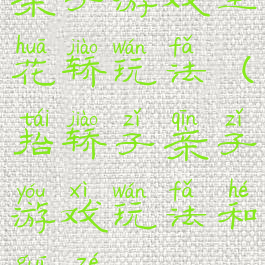 亲子游戏
huā jiào wán fǎ
花轿玩法（
tái jiào zǐ qīn zǐ
抬轿子亲子
yóu xì wán fǎ hé
游戏玩法和
zé